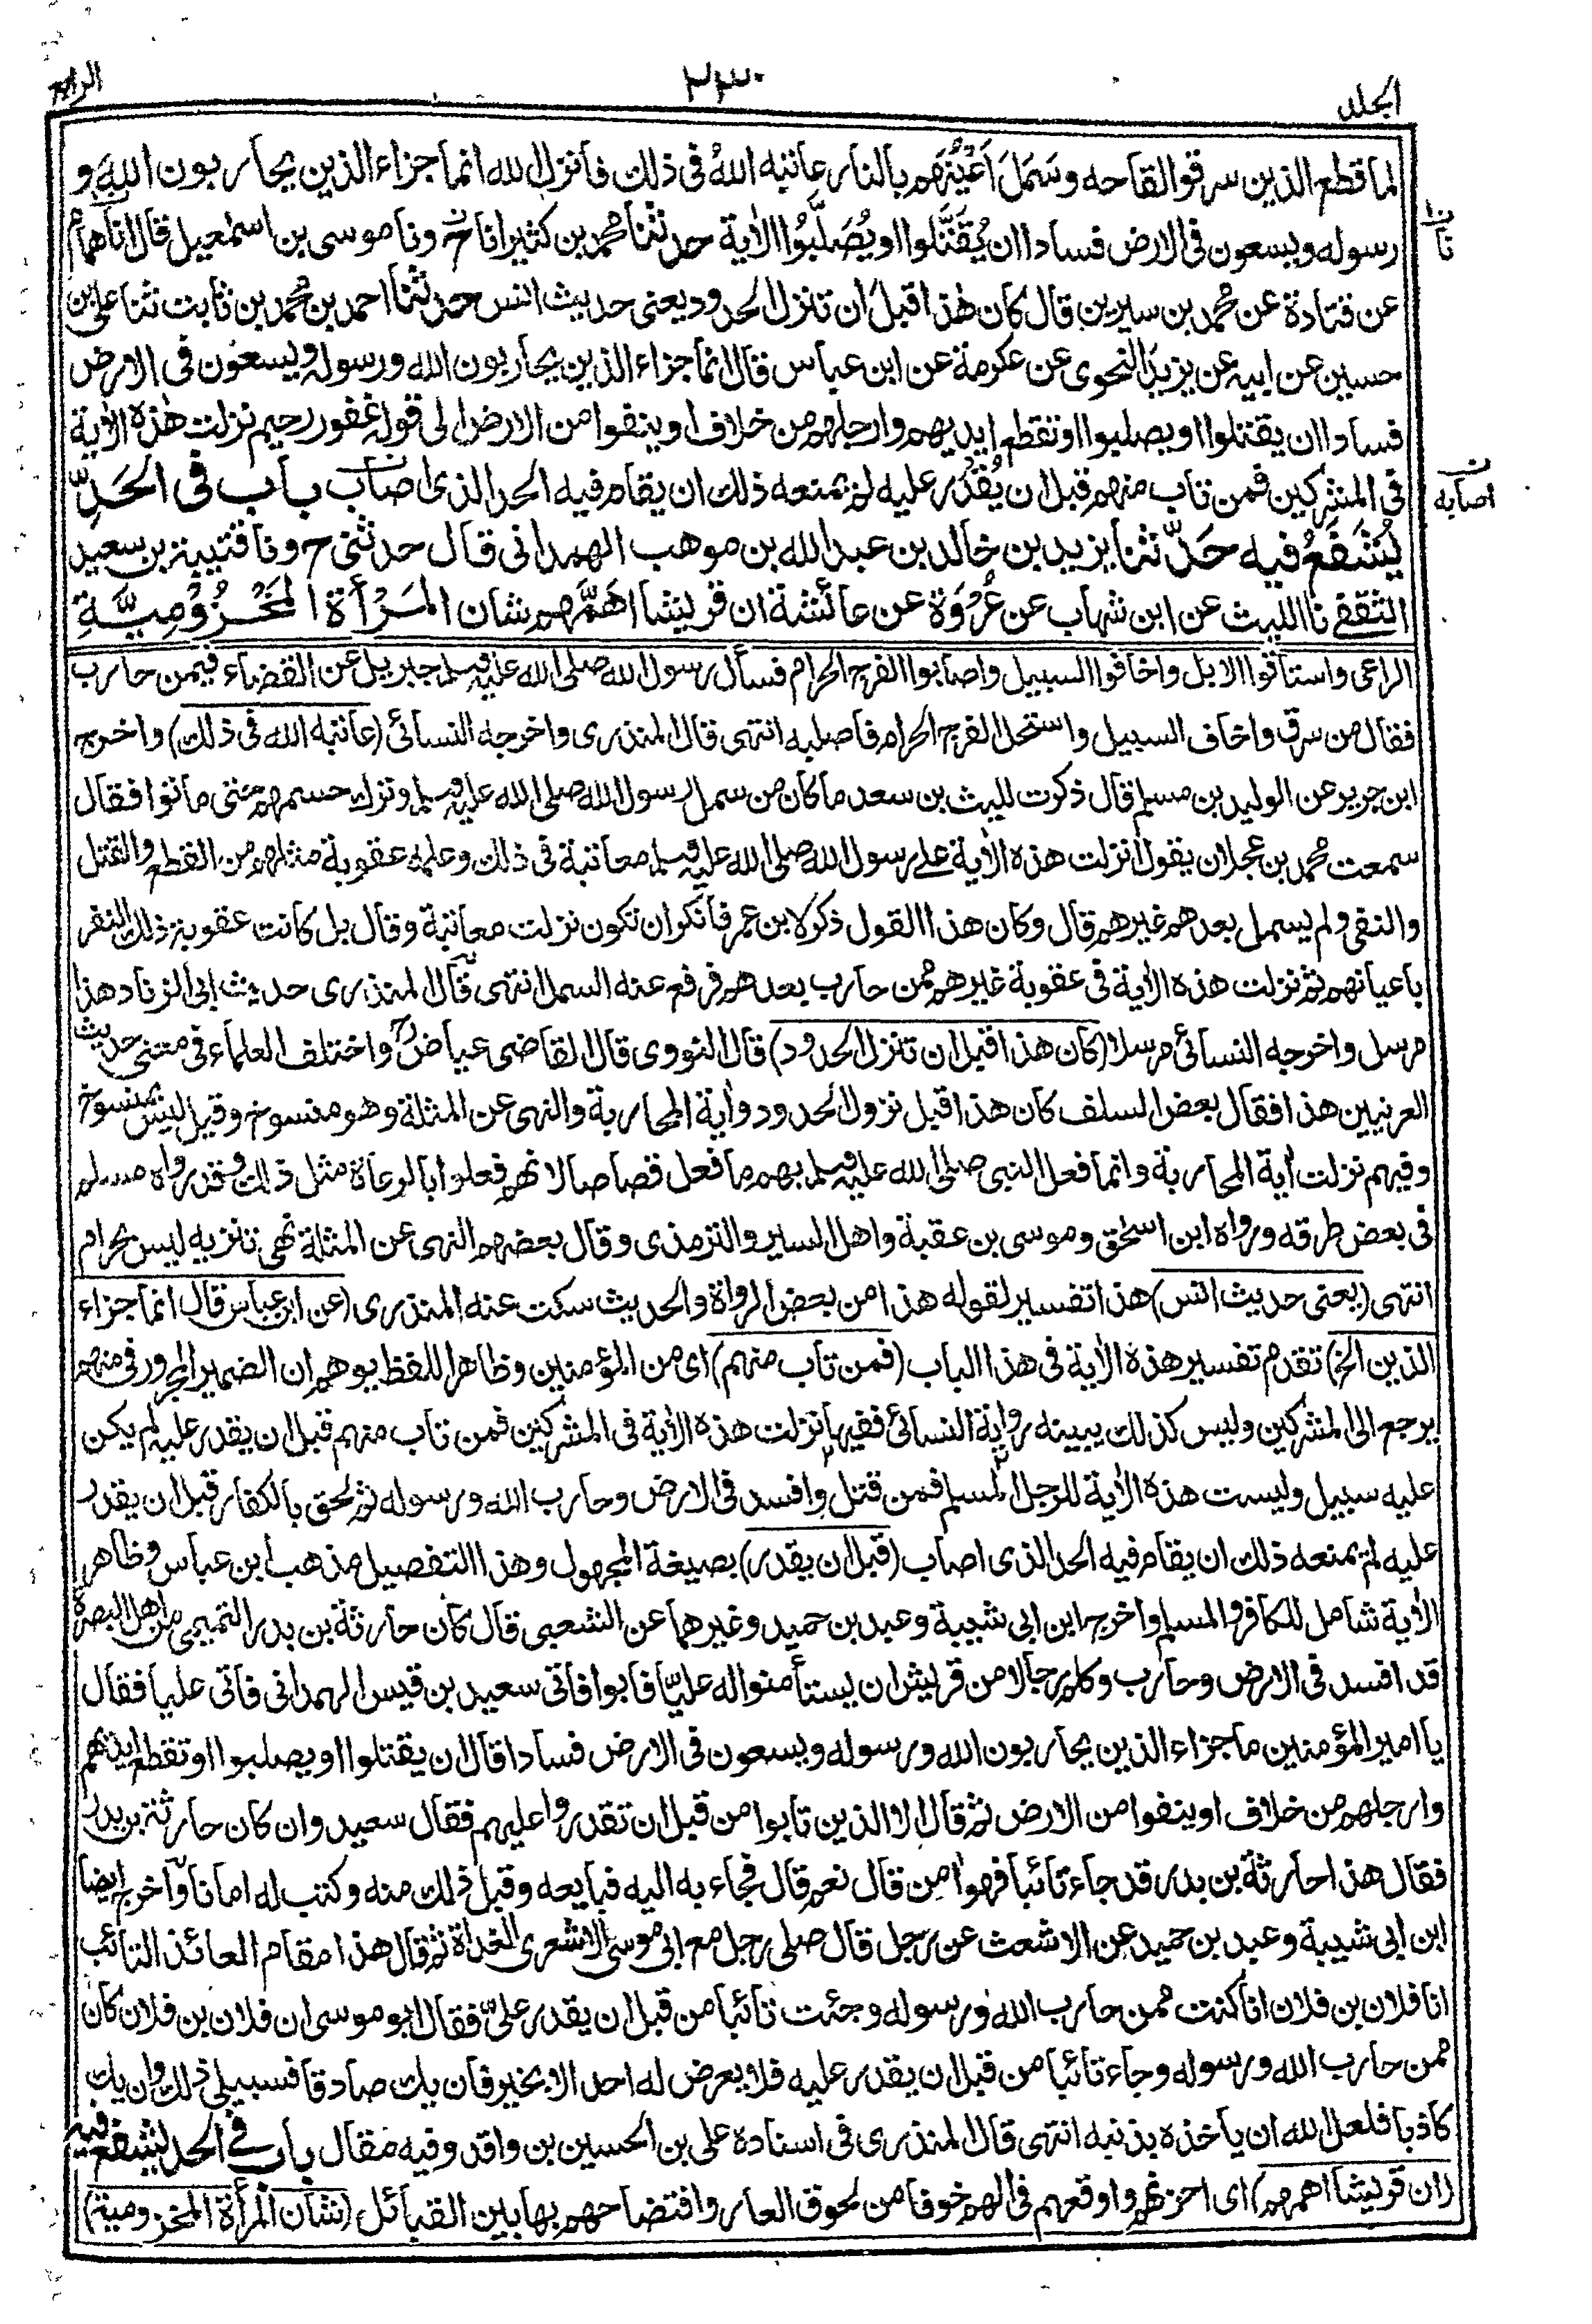 الجلد
٢٣٠
الرابع
لما قطع الذين سرقوا لقاحه وسَمَلَ اَعْيُنَهم بالنار عاتبه اللهُ فى ذلك فانزل الله انما جزاء الذين يحاربون الله و
رسوله ويسعون فى الارض فسادا ان يُقَتَّلوا او يُصَلَّبُوا الاٰية حدثنا محمد بن كثير انا ح ونا موسى بن اسمٰعيل قال انا همام
نا
عن قتادة عن محمد بن سيرين قال كان هٰذا قبل ان تنزل الحدود يعنى حديث انس حدثنا احمد بن محمد بن ثابت ثنا على بن
حسين عن ابيه عن يزيد النحوى عن عكرمة عن ابن عباس قال انما جزاء الذين يحاربون الله ورسوله ويسعون فى الارض
فسادا ان يقتلوا او يصلبوا او تقطع ايديهم وارجلهم من خلاف او ينفوا من الارض الى قوله غفور رحيم نزلت هٰذه الاٰية
فى المشركين فمن تاب منهم قبل ان يُقْدَر عليه لم يمنعه ذلك ان يقام فيه الحد الذى اصاب باب فى الحَدِّ
اصابه
يُشْفَعُ فيه حَدّثنا يزيد بن خالد بن عبد الله بن موهب الهمدانى قال حدثنى ح ونا قتيبة بن سعيد
الثقفى نا الليث عن ابن شهاب عن عُرْوَة عن عائشة ان قريشا اهَمَّهم شان المَرْأة المَخْزُوْمِيَّةِ
الراعى واستاقوا الابل واخافوا السبيل واصابوا الفرج الحرام فسأل رسول الله صلى الله عليه وسلم جبريل عن القضاء فيمن حارب
فقال من سرق واخاف السبيل واستحل الفرج الحرام فاصلبه انتهى قال المنذرى واخرجه النسائى (عاتبه الله فى ذلك) واخرج
ابن جرير عن الوليد بن مسلم قال ذكرت لليث بن سعد ما كان من سمل رسول الله صلى الله عليه وسلم وترك حسمهم حتى ماتوا فقال
سمعت محمد بن عجلان يقول انزلت هذه الاٰية على رسول الله صلى الله عليه وسلم معاتبة فى ذلك وعلمه عقوبة مثلهم من القطع والقتل
والنفى ولم يسمل بعدهم غيرهم قال وكان هذا القول ذكر لابن عمر فانكر ان تكون نزلت معاتبة وقال بل كانت عقوبة ذلك النفر
باعيانهم ثم نزلت هذه الاٰية فى عقوبة غيرهم ممن حارب بعدهم فرفع عنه السمل انتهى قال المنذرى حديث ابى الزناد هذا
مرسل واخرجه النسائى مرسلا (كان هذا قبل ان تنزل الحدود) قال النووى قال القاضى عياض رح واختلف العلماء فى معنى حديث
العرنيين هذا فقال بعض السلف كان هذا قبل نزول الحدود واٰية المحاربة والنهى عن المثلة وهو منسوخ وقيل ليس بمنسوخ
وفيهم نزلت اٰية المحاربة وانما فعل النبى صلى الله عليه وسلم بهم ما فعل قصاصا لانهم فعلوا بالرعاة مثل ذلك وقد رواه مسلم
فى بعض طرقه ورواه ابن اسحٰق وموسى بن عقبة واهل السير والترمذى وقال بعضهم النهى عن المثلة نهى تنزيه ليس بحرام
انتهى (يعنى حديث انس) هذا تفسير لقوله هذا من بعض الرواة والحديث سكت عنه المنذرى (عن ابن عباس قال انما جزاء
الذين الخ) تقدم تفسير هذه الاٰية فى هذا الباب (فمن تاب منهم) اى من المؤمنين وظاهر اللفظ يوهم ان الضمير المجرور فى منهم
يرجع الى المشركين وليس كذلك يبينه رواية النسائى ففيها نزلت هذه الاٰية فى المشركين فمن تاب منهم قبل ان يقدر عليه لم يكن
عليه سبيل وليست هذه الاٰية للرجل المسلم فمن قتل وافسد فى الارض وحارب الله ورسوله ثم لحق بالكفار قبل ان يقدر
عليه لم يمنعه ذلك ان يقام فيه الحد الذى اصاب (قبل ان يقدر) بصيغة المجهول وهذا التفصيل مذهب ابن عباس وظاهر
الاٰية شامل للكافر والمسلم واخرج ابن ابى شيبة وعبد بن حميد وغيرهما عن الشعبى قال كان حارثة بن بدر التميمى من اهل البصرة
قد افسد فى الارض وحارب وكلم رجالا من قريش ان يستأمنوا له عليّا فابوا فاتى سعيد بن قيس الهمدانى فاتى عليا فقال
يا امير المؤمنين ما جزاء الذين يحاربون الله ورسوله ويسعون فى الارض فسادا قال ان يقتلوا او يصلبوا او تقطع ايديهم
وارجلهم من خلاف او ينفوا من الارض ثم قال الا الذين تابوا من قبل ان تقدروا عليهم فقال سعيد وان كان حارثة بن بدر
فقال هذا حارثة بن بدر قد جاء تائبا فهو اٰمن قال نعم قال فجاء به اليه فبايعه وقبل ذلك منه وكتب له امانا واخرج ايضا
ابن ابى شيبة وعبد بن حميد عن الاشعث عن رجل قال صلى رجل مع ابى موسى الاشعرى الغداة ثم قال هذا مقام العائذ التائب
انا فلان بن فلان انا كنت ممن حارب الله ورسوله وجئت تائبا من قبل ان يقدر علىّ فقال ابو موسى ان فلان بن فلان كان
ممن حارب الله ورسوله وجاء تائبا من قبل ان يقدر عليه فلا يعرض له احد الا بخير فان يك صادقا فسبيلى ذلك وان يك
كاذبا فلعل الله ان يأخذه بذنبه انتهى قال المنذرى فى اسناده على بن الحسين بن واقد وفيه مقال باب فى الحد يشفع فيه
(ان قريشا اهمهم) اى احزنهم واوقعهم فى الهم خوفا من لحوق العار وافتضاحهم بها بين القبائل (شان المرأة المخزومية)